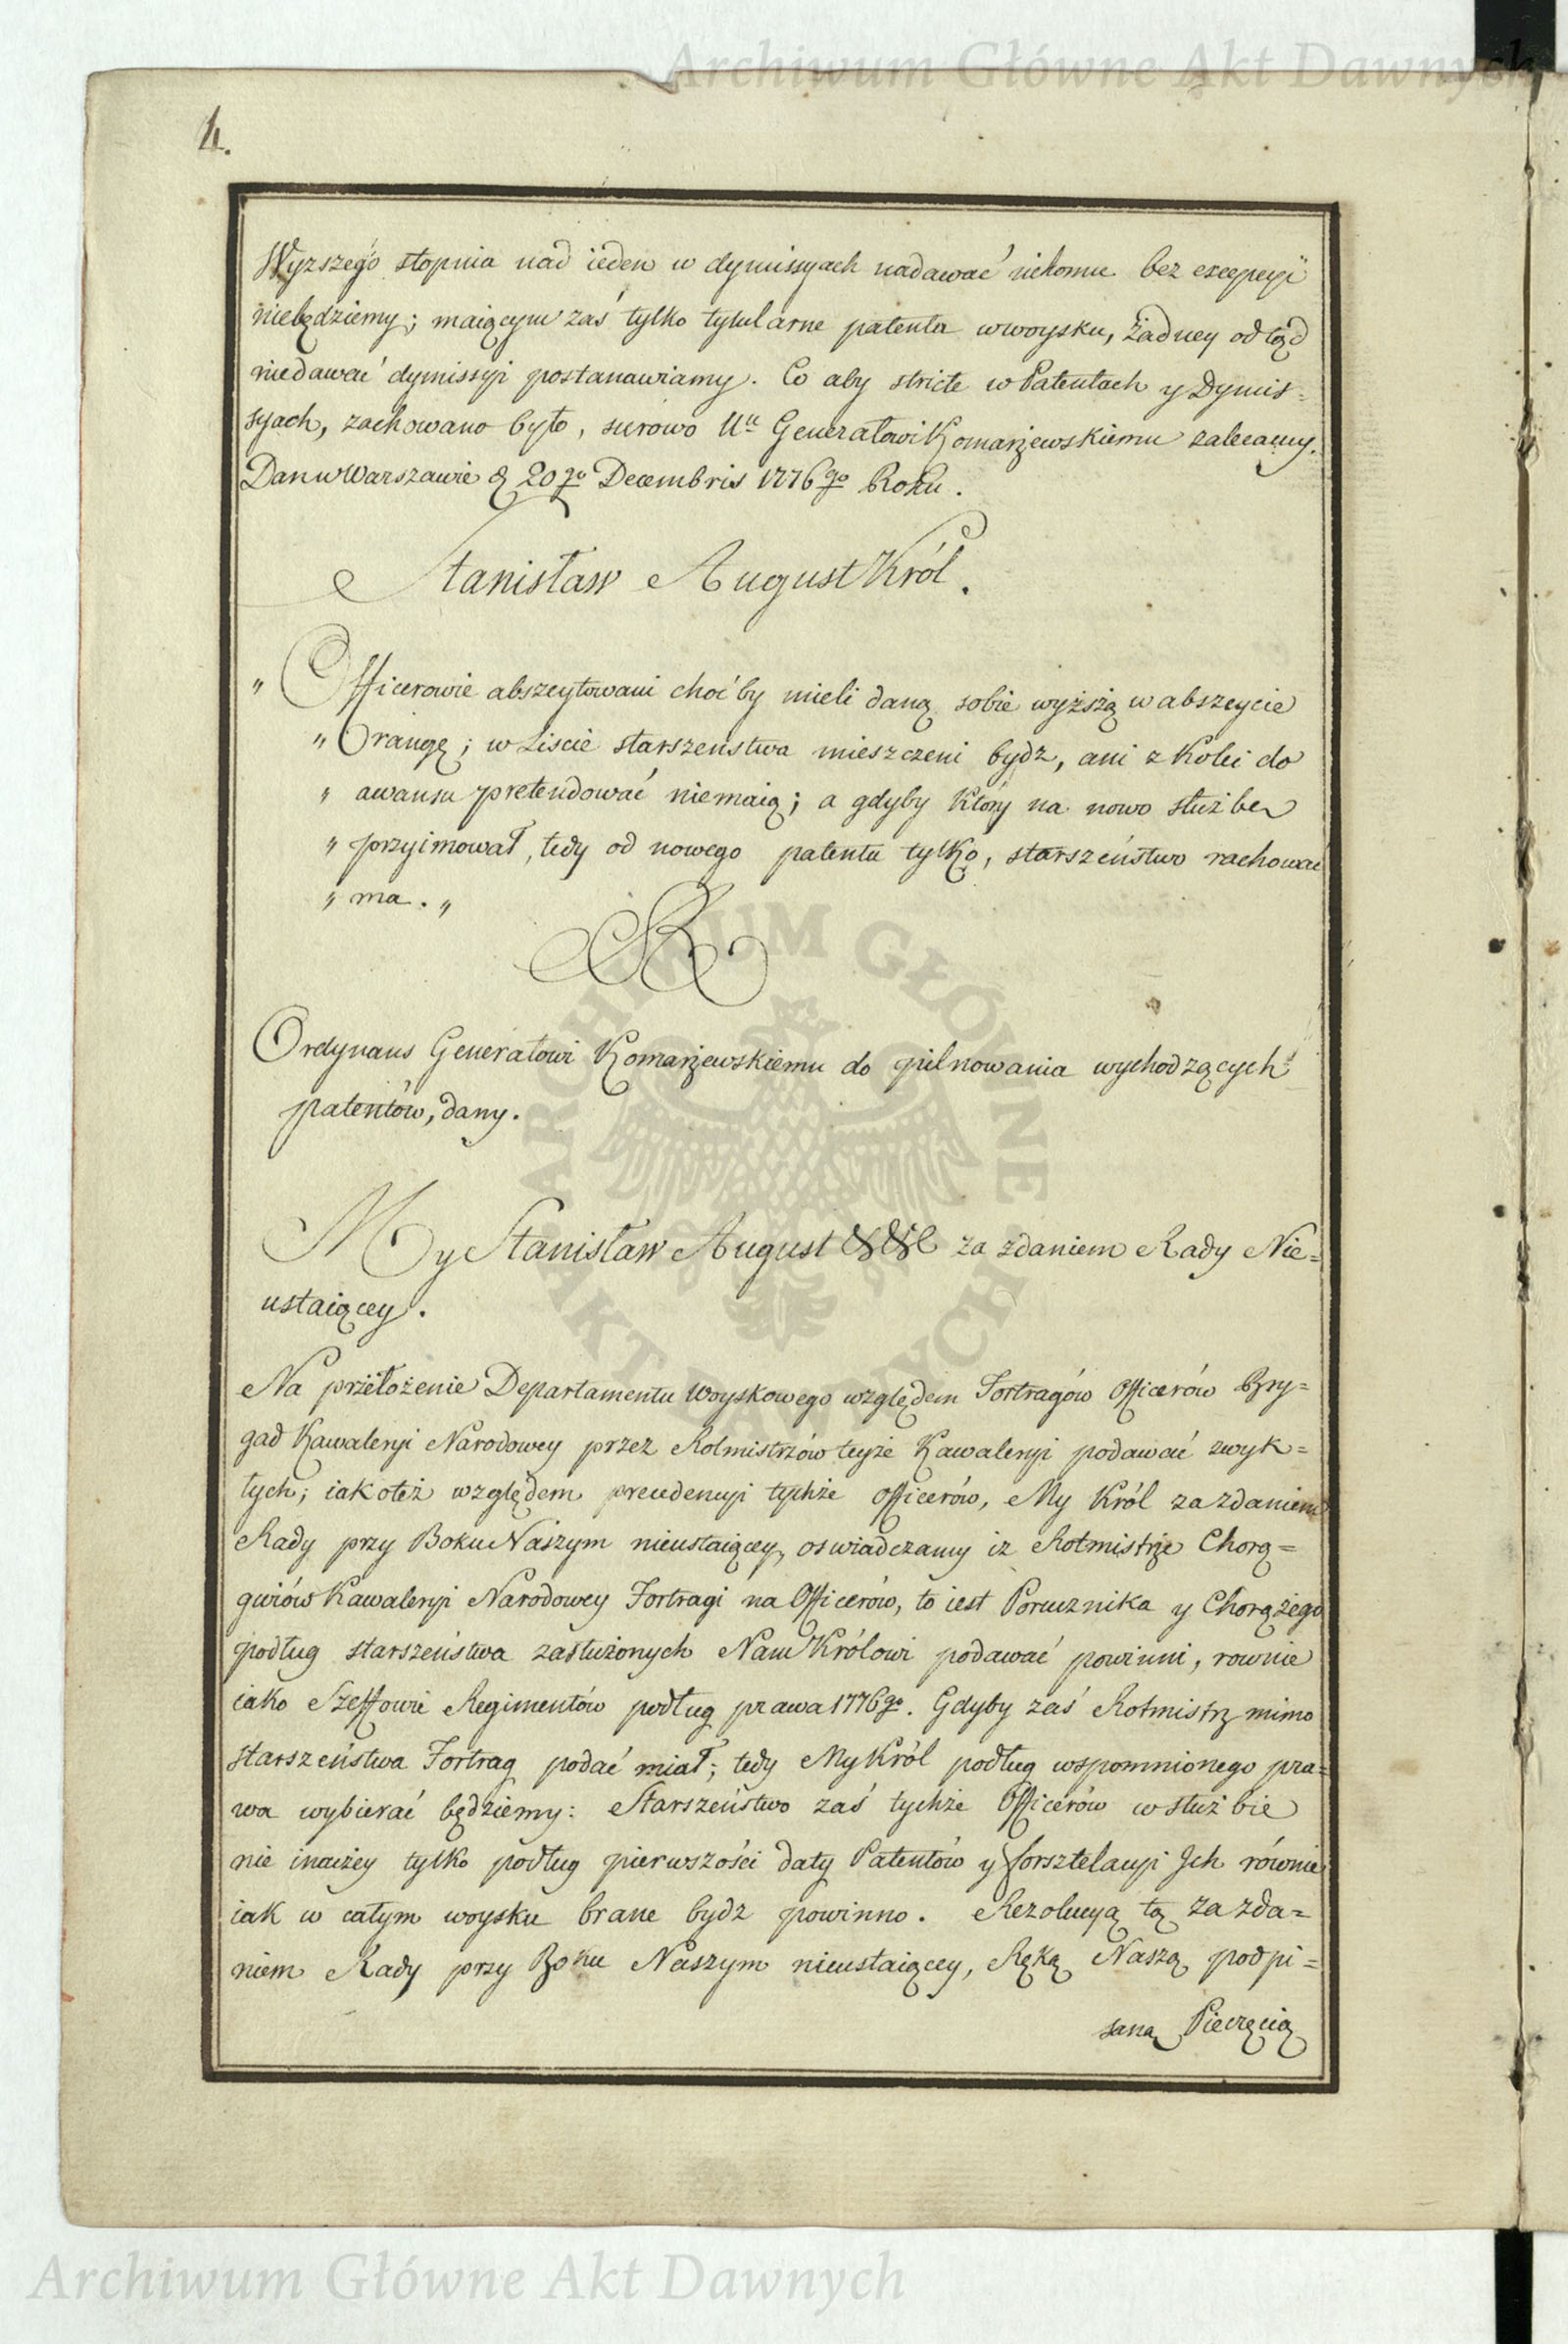 Archiwum Główne Akt Dawnych
4.
Wyzszego stopnia nad ieden w dymissyach nadawać nikomu bez excepcyi
niebędziemy; maiącym zaś tylko tytularne patenta wwoysku, żadney odtąd
niedawać dymissyi postanawiamy. Co aby stricte w Patentach y Dymis=
syach, zachowano było, surowo Ur Generałowi Komarzewskiemu zalecamy.
Dan w Warszawie d. 20go Decembris 1776go Roku.
Stanisław August Król.
" Officerowie abszeytowani choćby mieli daną sobie wyższą w abszeycie
" rangę; w Liscie starszenstwa mieszczeni bydz, ani z Kolei do
" awansu pretendować niemaią; a gdyby Ktory na nowo służbe
" przyimował, tedy od nowego patentu tylko, starszeństwo rachowac
" ma. "
SAR
Ordynans Generałowi Komarzewskiemu do pilnowania wychodzących
patentów, dany.
My Stanisław August &c &c za zdaniem Rady Nie=
ustaiącey.
Na przełożenie Departamentu Woyskowego względem Fortragów Officerów Bry=
gad Kawaleryi Narodowey przez Rotmistrzów teyże Kawaleryi podawać zwyk=
łych; iakoteż względem precedencyi tychże Officerów, My Król za zdaniem
Rady przy Boku Naszym nieustaiącey, oswiadczamy iz Rotmistrze Chorą=
gwiów Kawaleryi Narodowey Fortragi na Officerów, to iest Porucznika y Chorążego
podług starszeństwa zasłużonych Nam Królowi podawać powinni, rownie
iako Szeffowie Regimentów podług prawa 1776go. Gdyby zaś Rotmistrz mimo
starszeństwa Fortrag podać miał; tedy My Król podług wspomnionego pra=
wa wybierać będziemy: Starszeństwo zaś tychże Officerów w służbie
nie inaczey tylko podług pierwszości daty Patentów y forsztelacyi Jch równie
iak w całym woysku brane bydz powinno. Rezolucyą tą za zda=
niem Rady przy Boku Naszym nieustaiącey, Ręką Naszą podpi=
saną Pieczęcią
ARCHIWUM GŁÓWNE AKT DAWNYCH
Archiwum Główne Akt Dawnych